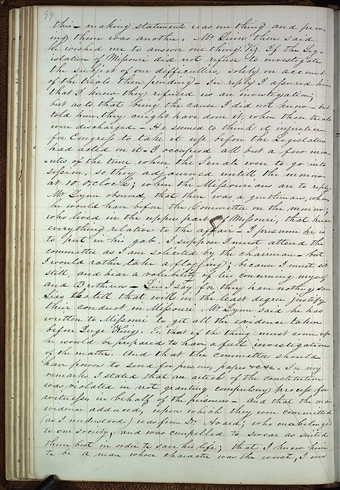 97
this – making statements was one thing and prov-
ing them was another. Mr Linn then said
he wished me to answer one thing Viz If the Leg-
islature of Missouri did not refuse to investigate
the subject of our difficulties, solely on account
of the trials then pending – In reply I assured him
that I knew they refused us an investigation;
but as to that being the cause I did not know – but
told him they might have done it, when those trials
were discharged – He seemed to think it injustice
for Congress to take it up before the Legislature
had acted on it – I occupied all but a few min-
utes of the time when the Senate were to go into
session, so they adjourned until the morrow
at 10 O'clock; when the Missourians are to reply.
Mr Lynn observed that there was a gentleman, whom
he would have before the Committee on the morrow,
who lived in the upper part of Missouri, that knew
everything relative to the affair – I presume he is
to put in his gab. I suppose I must attend the
committee as I am solicited by the chairman – but
I would rather take a flogging; because I must sit
still, and hear a volubility of lies concerning myself
and Brethren – Lies I say for they have nothing but
Lies to tell that will in the least degree justify
their conduct in Missouri. Mr Lynn said he has
written to Missouri to get all the evidence taken
before Judge King, so that if the thing must come up
he would be prepared to have a full investigation
of the matter. And that the committee should
have power to send for persons papers &c &c. In my
remarks I stated that an article of the constitution
was violated in not granting compulsory process for
witnesses in behalf of the prisoners – And that the main
evidence adduced, upon which they were committed
(as I understood) was from Dr. Avard, who once belonged
to our society, and was compelled to swear as suited
them best in order to save his life; that I knew him
to be a man whose character was the worst, I ever